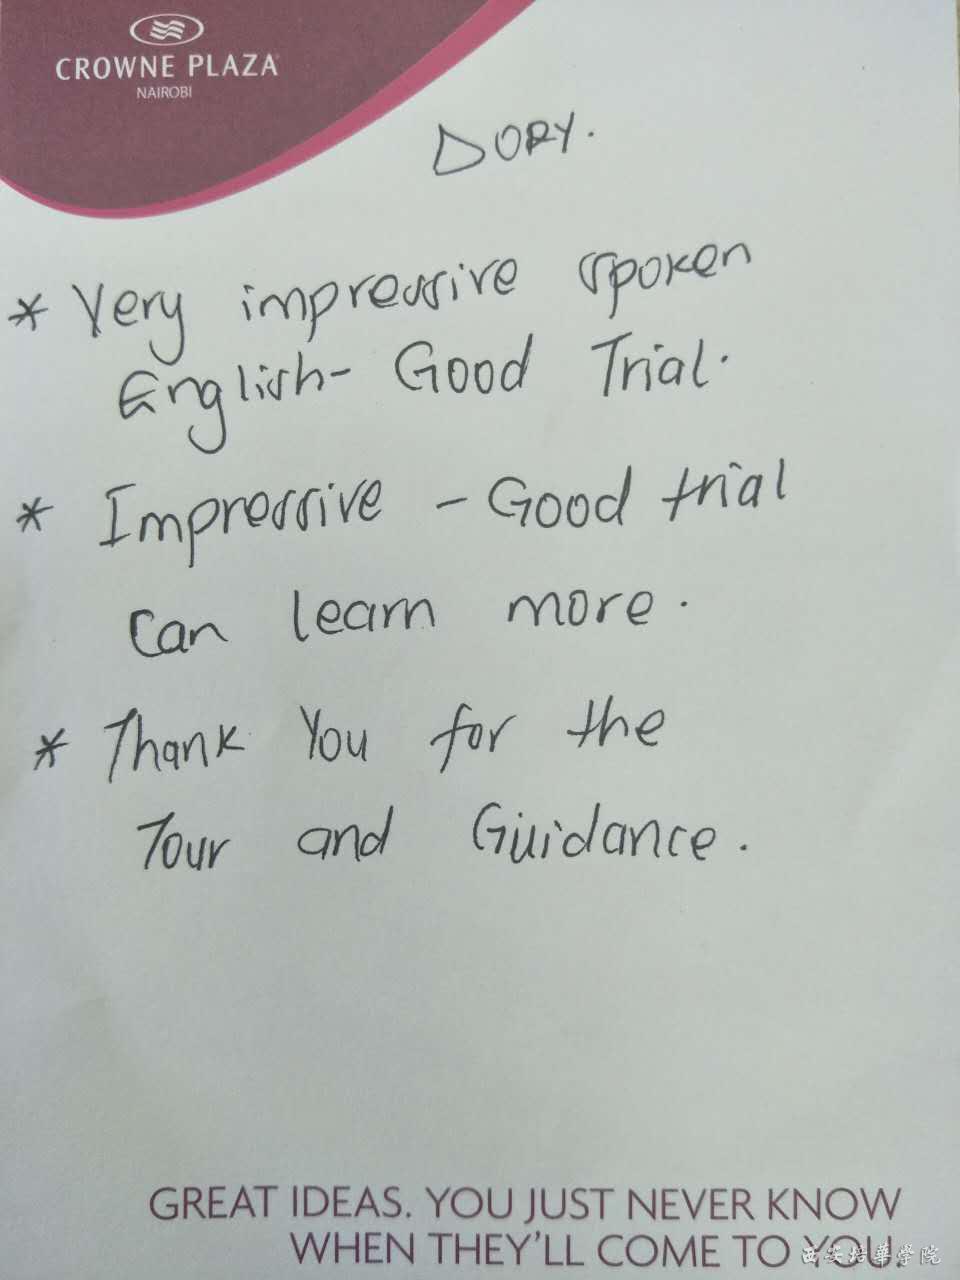 CROWNE PLAZA
NAIROBI
DORY.
* Very impressive spoken
English- Good Trial.
* Impressive - Good trial
can learn more.
* Thank You for the
Tour and Guidance.
GREAT IDEAS. YOU JUST NEVER KNOW
WHEN THEY'LL COME TO YOU.
西安培華學院